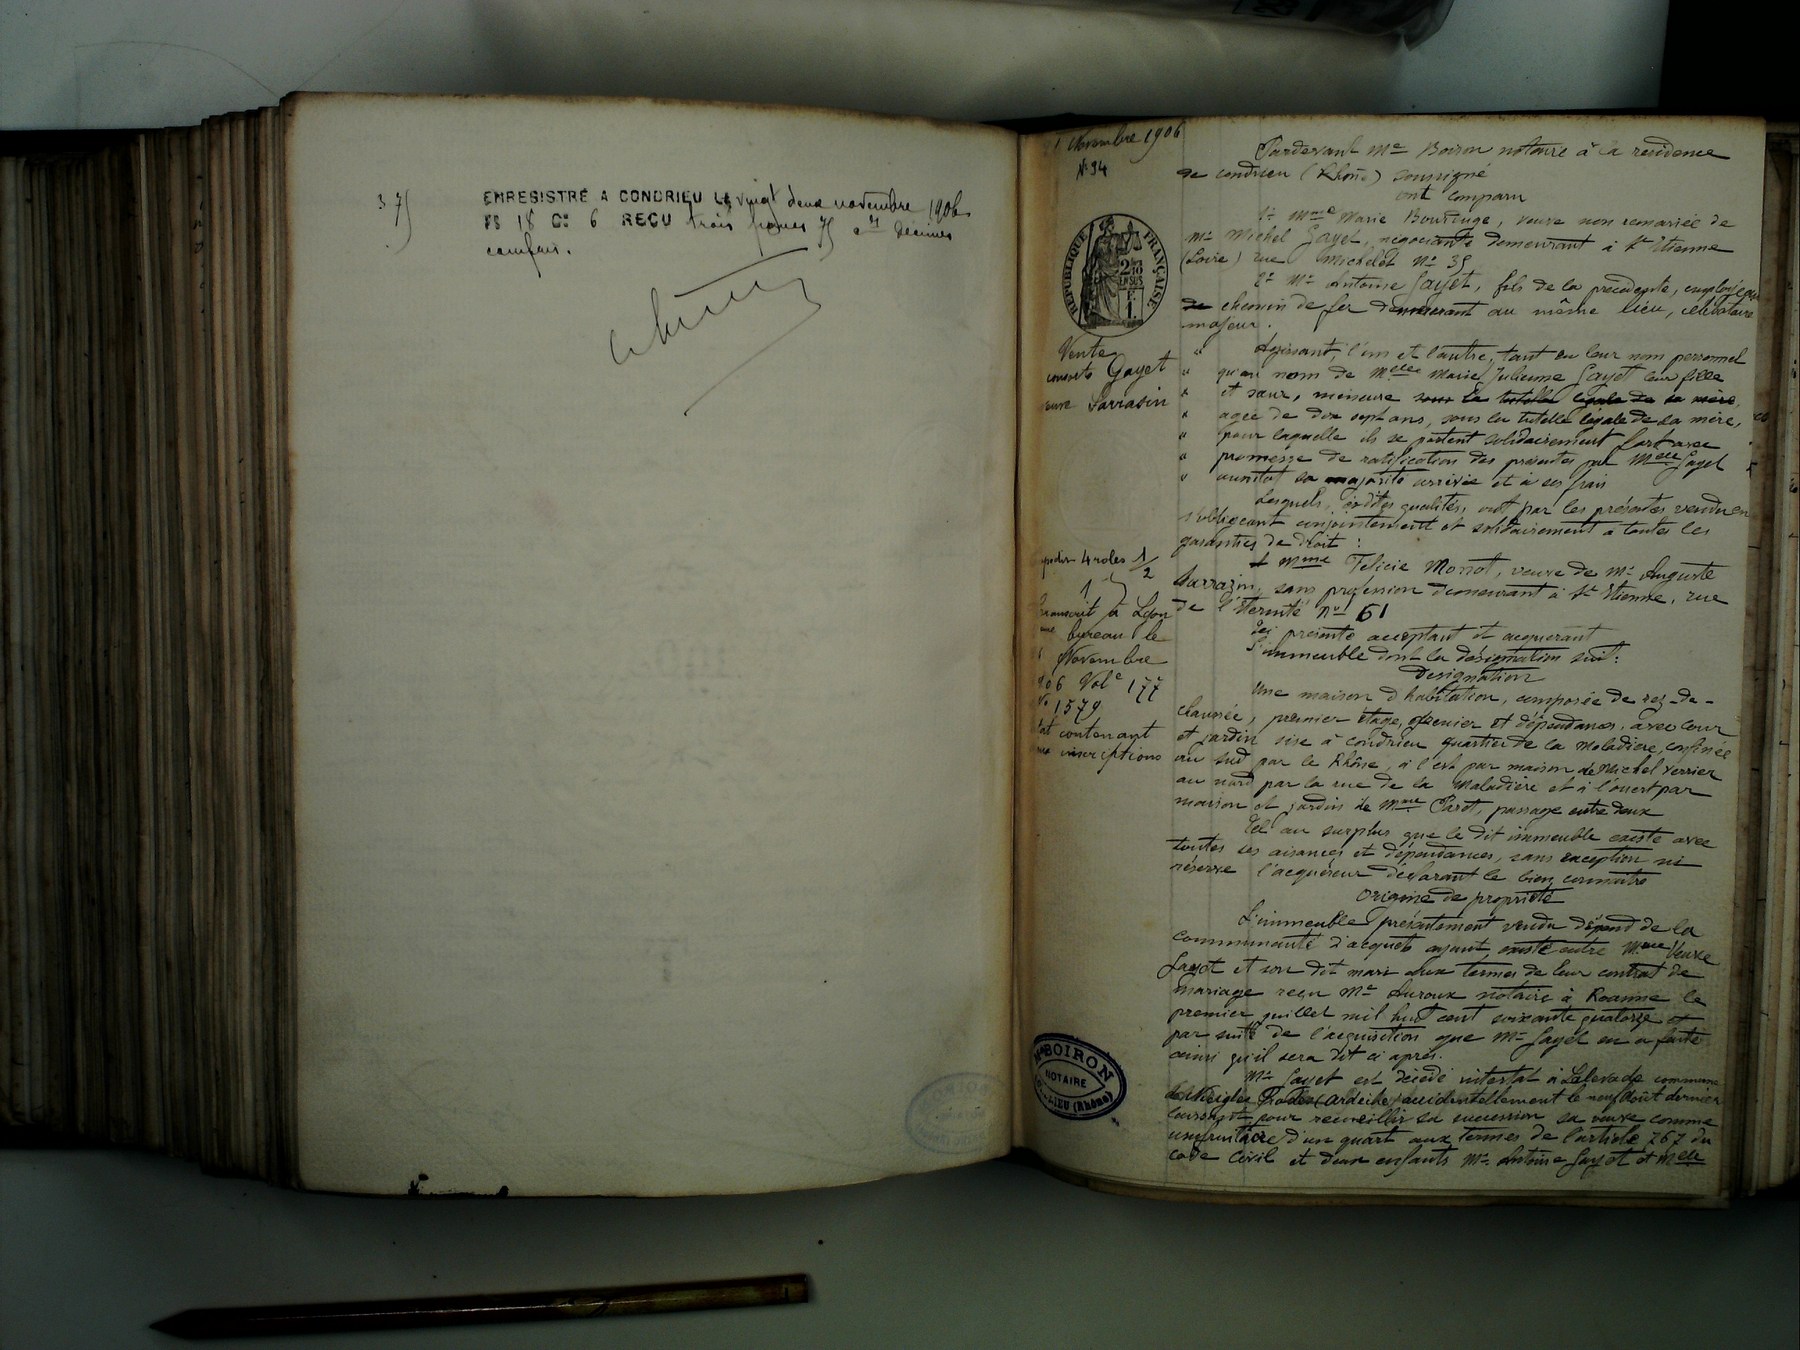 3 75
ENREGISTRÉ A CONDRIEU LE vingt deux novembre 1906
Fo 18 Ce 6 REÇU trois francs 75 décimes
compris.
Novembre 1906
No 94
RÉPUBLIQUE FRANÇAISE
Vente
consorts Gayet
veuve Sarrasin
4 roles 1/2
1
transcrit à Lyon
bureau le
Novembre
1906 Vole 177
No 1579
état contenant
inscriptions
Me BOIRON
NOTAIRE
CONDRIEU (Rhône)
Pardevant Me Boiron notaire à la résidence
de Condrieu (Rhône) soussigné
ont comparu
1o Mme Marie Bouringe, veuve non remariée de
Mr Michel Gayet, négociante demeurant à St Etienne
(Loire) rue Michelet No 35
2o Mr Antoine Gayet, fils de la précédente, employé au
de chemin de fer demeurant au même lieu, célibataire
majeur.
" Agissant, l'un et l'autre, tant en leur nom personnel
" qu'au nom de Melle Marie Julienne Gayet leur fille
" et sœur, mineure sous la tutelle légale de sa mère,
" agée de dix sept ans, sous la tutelle légale de sa mère,
" pour laquelle ils se portent solidairement fort avec
" promesse de ratification des présentes par Melle Gayet
" aussitot sa majorité arrivée et à ses frais
Lesquels, èsdites qualités, ont par les présentes vendu en
s'obligeant conjointement et solidairement a toutes les
garanties de droit :
A Mme Felicie Morrot, veuve de Mr Auguste
Sarrazin, sans profession demeurant à St Etienne, rue
de l'Eternité No 61
Ici présente acceptant et acquerant
L'immeuble dont la désignation suit :
Designation
Une maison d'habitation, composée de rez-de-
chaussée, premier étage, grenier et dépendances, avec cour
et jardin sise à Condrieu quartier de la Maladière, confinée
au sud par le Rhône, à l'est par maison de Michel Verrier
au nord par la rue de la Maladière et à l'ouest par
maison et jardin de Mme Parot, passage entre deux
Tel au surplus que le dit immeuble existe avec
toutes ses aisances et dépendances, sans exception ni
réserve l'acquéreur déclarant le bien connaitre
Origine de propriété
L'immeuble présentement vendu dépend de la
communauté d'acquets ayant existé entre Mme Veuve
Gayet et son dit mari aux termes de leur contrat de
mariage reçu Me Auroux notaire à Roanne le
premier juillet mil huit cent soixante quatorze et
par suite de l'acquisition que Mr Gayet en a faite
ainsi qu'il sera dit ci après.
Mr Gayet est décédé intestat à Lalevade commune
de Neigles Prades (Ardèche) accidentellement le neuf Août dernier
laissant pour recueillir sa succession sa veuve comme
usufruitière d'un quart aux termes de l'article 767 du
code Civil et deux enfants Mr Antoine Gayet et Melle